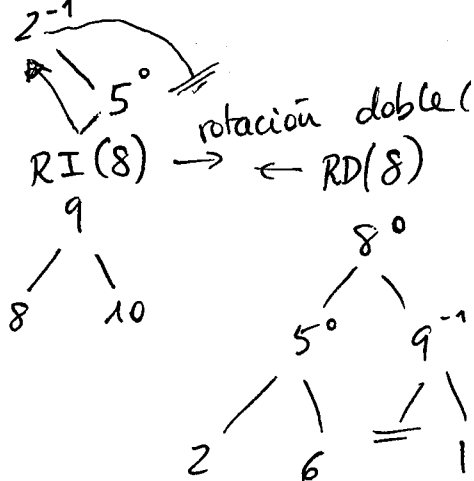 2⁻¹
5⁰
rotación doble(
RI(8) → ← RD(8)
9
8⁰
8 10
5⁰ 9⁻¹
2 6 1